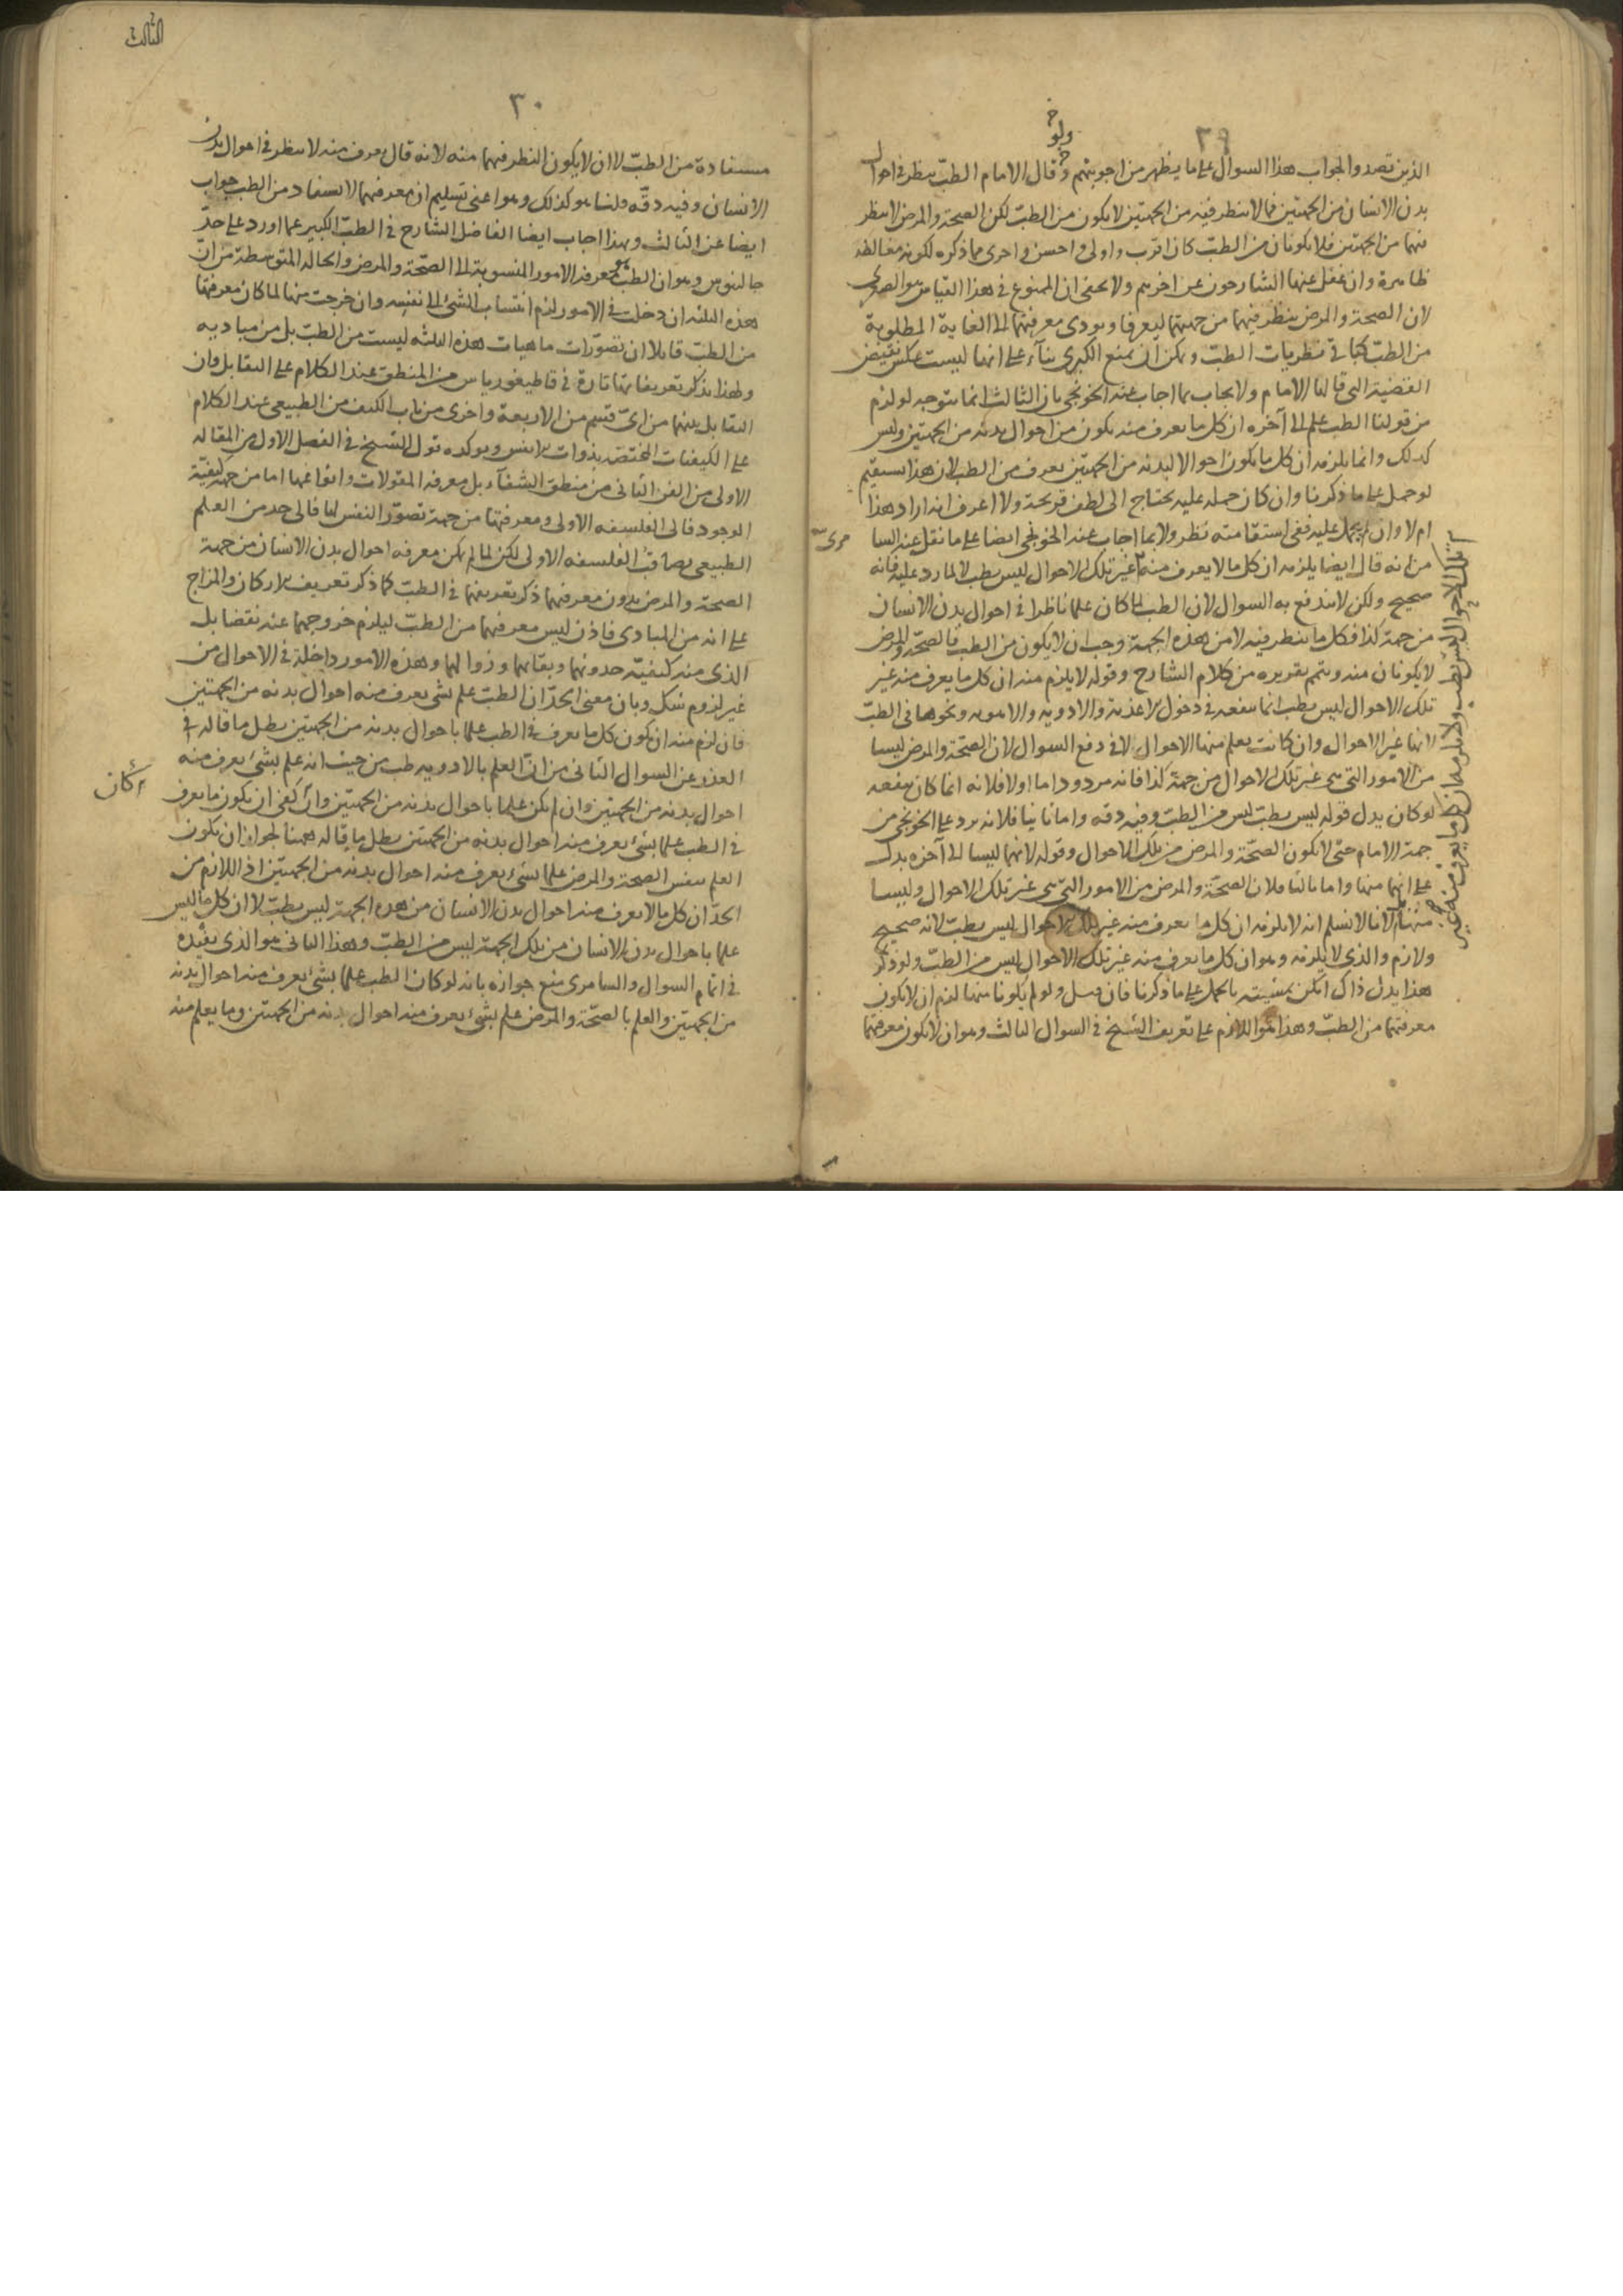 ٢٩
ولو
الذين تصدوا لجواب هذا السوال على ما يظهر من اجوبتهم وقال الامام الطب ينظر فى احوال
بدن الانسان من الجهتين فما لا ينظر فيه من الجهتين لا يكون من الطب لكن الصحة والمرض لا ينظر
فيهما من الجهتين فلا يكونان من الطب كان اقرب واولى واحسن واحرى مما ذكره لكونه مغالطة
ظاهرة وان غفل عنها الشارحون عن اخرهم ولا يخفى ان الممنوع فى هذا القياس هو الصغرى
لان الصحة والمرض ينظر فيهما من جهتهما ليعرفا ويودى معرفتهما الى الغاية المطلوبة
من الطب كما فى نظريات الطب ويمكن ان يمنع الكبرى بناء على انها ليست عكس نقيض
القضية التى قالها الامام ولا يجاب بما اجاب عنه الخونجى بان الثالث انما يتوجه لو لزم
من قولنا الطب علم الى آخره ان كل ما يعرف منه يكون من احوال بدنه من الجهتين وليس
كذلك وانما يلزمه ان كل ما يكون احوالا لبدنه من الجهتين يعرف من الطب لان هذا يستقيم
لو حمل على ما ذكرنا وان كان حمله عليه يحتاج الى لطف قريحة ولا اعرف انه اراد هذا
ام لا وان لم يحمل عليه ففى استقامته نظر ولا بما اجاب عنه الخونجى ايضا على ما نقل عنه السا
مرى
من انه قال ايضا يلزمه ان كل ما لا يعرف منه غير تلك الاحوال ليس بطب لا لما رد عليه فانه
صحيح ولكن لا يندفع به السوال لان الطب لما كان علما ناظرا فى احوال بدن الانسان
من جهة كذا فكل ما ينظر فيه لا من هذه الجهة وجب ان لا يكون من الطب فالصحة والمرض
لا يكونان منه ويتم تقريره من كلام الشارح وقوله لا يلزم منه ان كل ما يعرف منه غير
تلك الاحوال ليس بطب انما ينفعه فى دخول الاغذية والادوية والاهوية ونحوها فى الطب
لانها غير الاحوال وان كانت يعلم منها الاحوال لا فى دفع السوال لان الصحة والمرض ليسا
من الامور التى هى غير تلك الاحوال من جهة كذا فانه مردود اما اولا فلانه انما كان ينفعه
لو كان بدل قوله ليس بطب ليس من الطب وفيه دقة واما ثانيا فلانه يرد على الخونجى من
جهة الامام حتى لا يكون الصحة والمرض من تلك الاحوال وقوله لانهما ليسا الى آخره يدل
على انهما منها واما ثالثا فلان الصحة والمرض من الامور التى هى غير تلك الاحوال وليسا
منها لانا لا نسلم انه لا يلزمه ان كل ما يعرف منه غير تلك الاحوال ليس بطب لانه صحيح
ولازم والذى لا يلزمه وهو ان كل ما يعرف منه غير تلك الاحوال ليس من الطب ولو ذكر
هذا بدل ذاك امكن تمشيته بالحمل على ما ذكرنا فان قيل ولو لم يكونا منها لزم ان لا يكون
معرفتهما من الطب وهذا هو اللازم على تعريف الشيخ فى السوال الثالث وهو ان لا يكون معرفتهما
تلك الاحوال ليس بطب ولا يلزمه ان كل ما يعرف منه غير
الثالث
٣٠
مستفادة من الطب لا ان لا يكون النظر فيهما منه لانه قال يعرف منه لا ينظر فى احوال بدن
الانسان وفيه دقة قلنا هو كذلك وهو اعنى تسليم ان معرفتهما لا تستفاد من الطب جواب
ايضا عن الثالث وبهذا اجاب ايضا الفاضل الشارح فى الطب الكبير عما اورد على حد
جالينوس وهو ان الطب هو معرفة الامور المنسوبة الى الصحة والمرض والحالة المتوسطة من ان
هذه الثلثة ان دخلت فى الامور لزم انتساب الشئ الى نفسه وان خرجت منها لما كان معرفتها
من الطب قايلا ان تصورات ماهيات هذه الثلثة ليست من الطب بل من مباديه
ولهذا يذكر تعريفاتها تارة فى قاطيغورياس من المنطق عند الكلام على التقابل وان
التقابل بينهما من اى قسم من الاربعة واخرى من باب الكيف من الطبيعى عند الكلام
على الكيفيات المختصة بذوات الانفس ويوكده قول الشيخ فى الفصل الاول من المقالة
الاولى من الفن الثانى من منطق الشفاء بل معرفة المقولات وانواعها اما من جهة كيفية
الوجود فالى الفلسفة الاولى ومعرفتها من جهة تصور النفس لها فالى حد من العلم
الطبيعى يصاقب الفلسفة الاولى لكن لما لم يكن معرفة احوال بدن الانسان من جهة
الصحة والمرض بدون معرفتهما ذكر تعريفهما فى الطب كما ذكر تعريف الاركان والمزاج
على انه من المبادى فاذن ليس معرفتهما من الطب ليلزم خروجهما عنه نقضا بل
الذى منه كيفية حدوثهما وبقائهما وزوالهما وهذه الامور داخلة فى الاحوال من
غير لزوم شك وبان معنى الحد ان الطب علم بشئ يعرف منه احوال بدنه من الجهتين
فان لزم منه ان يكون كل ما يعرف فى الطب علما باحوال بدنه من الجهتين بطل ما قاله فى
العذر عن السوال الثانى من ان العلم بالادوية طب من حيث انه علم بشئ يعرف منه
احوال بدنه من الجهتين وان لم يكن علما باحوال بدنه من الجهتين وان كفى ان يكون ما يعرف
كان
فى الطب علما بشئ يعرف منه احوال بدنه من الجهتين بطل ما قاله ههنا لجواز ان يكون
العلم بنفس الصحة والمرض علما بشئ يعرف منه احوال بدنه من الجهتين اذ اللازم من
الحد ان كل ما لا يعرف منه احوال بدن الانسان من هذه الجهة ليس بطب لا ان كل ما ليس
علما باحوال بدن الانسان من تلك الجهة ليس من الطب وهذا الثانى هو الذى يفيده
فى اتمام السوال والسامرى منع جوازه بانه لو كان الطب علما بشئ يعرف منه احوال بدنه
من الجهتين والعلم بالصحة والمرض علم بشئ يعرف منه احوال بدنه من الجهتين وما يعلم منه